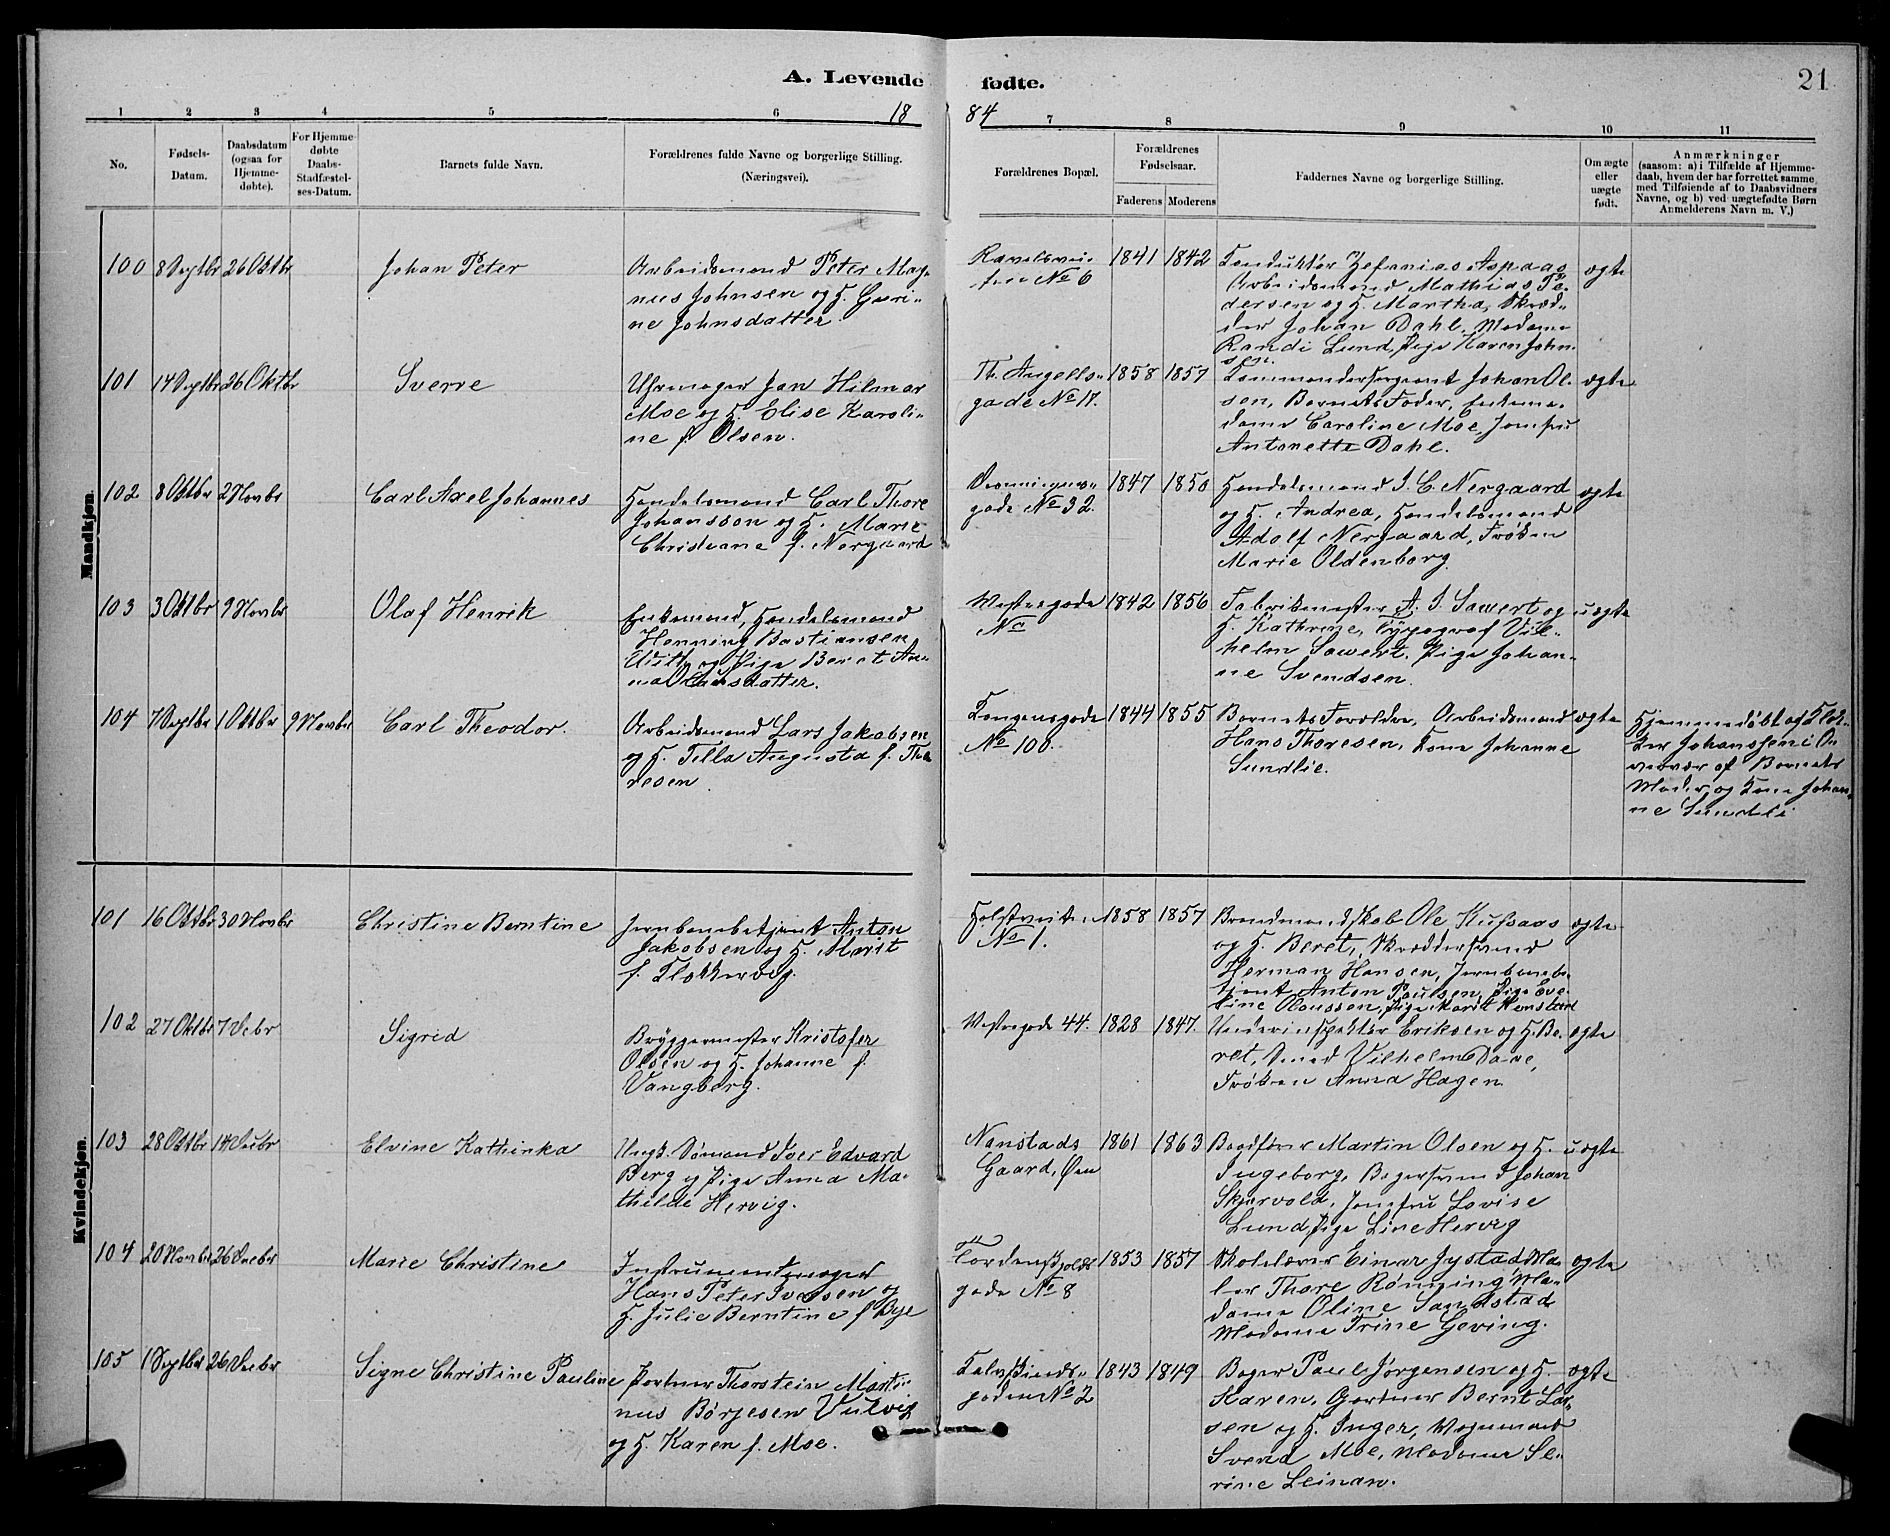 A. Levende fødte.
21
1884
1 2 3 4 5 6 7 8 9 10 11
No.
Fødsels-Datum.
Daabsdatum (ogsaa for Hjemme-døbte).
For Hjemme-døbte Daabs-Stadfæstel-ses-Datum.
Barnets fulde Navn.
Forældrenes fulde Navne og borgerlige Stilling.
(Næringsvei).
Forældrenes Bopæl.
Forældrenes Fødselsaar.
Faderens Moderens
Faddernes Navne og borgerlige Stilling.
Om ægte eller uægte født.
Anmærkninger
(saasom: a) i Tilfælde af Hjemme-
daab, hvem der har forrettet samme,
med Tilføiende af to Daabsvidners
Navne, og b) ved uægtefødte Børn
Anmelderens Navn m. V.)
Mandkjøn.
100 8 Septbr 26 Oktbr
Johan Peter
Arbeidsmand Peter Mag-
nus Johnsen og H. Guri-
ne Johnsdatter.
No 6
1841 1842
Konduktør Zefanias Aspaas
Arbeidsmand Mathias Pe-
dersen og H. Martha, Skræd-
der Johan Dahl, Madame
Randi Lund, Pige Karen John-
sen.
ægte
101 14 Septbr 26 Oktbr
Sverre
Uhrmager Jan Hilmar
Moe og H. Elise Karoli-
ne f. Olsen.
Th. Angells-
gade No 17.
1858 1857
Kommandersergeant Johan Ol-
sen, Barnets Fader, Enkema-
dame Caroline Moe, Jomfru
Antonette Dahl.
ægte
102 8 Oktbr 2 Novbr
Carl Axel Johannes
Handelsmand Carl Thore
Johansson og H. Marie
Christiane f. Nergaard
Dronningens-
gade No 32.
1847 1850
Handelsmand I. C. Nergaard
og H. Andrea, Handelsmand
Adolf Nergaard, Frøken
Marie Oldenborg.
ægte
103 3 Oktbr 9 Novbr
Olaf Henrik
Enkemand, Handelsmand
Henning Bastiansen
Witt og Pige Beret An-
na Olausdatter.
Vestregade
No
1842 1856
Fabrikmester A. I. Sawert og
H. Kathrine, Typograf Vil-
helm Sawert, Pige Johan-
ne Svendsen.
uægte
104 7 Septbr 1 Oktbr 9 Novbr
Carl Theodor.
Arbeidsmand Lars Jakobsen
og H. Tella Augusta f. Tho-
resen
Kongensgade
No 100.
1844 1855
Barnets Forældre, Arbeidsmand
Hans Thoresen, Kone Johanne
Sundlie.
ægte
Hjemmedøbt af Klok-
ker Johanssen i O-
vervær af Barnets
Moder og Kone Johan-
ne Sundli
Kvindekjøn.
101 16 Oktbr 30 Novbr
Christine Berntine
Jernbanebetjent Anton
Jakobsen og H. Marit
f. Flokkervig.
Holstveiten
No 1.
1858 1857
Brandmandskab Ole Kufaas
og H. Beret, Skræddersvend
Herman Hansen, Jernbanebe-
tjent Anton Paulsen, Pige Eve-
line Olaussen, Pige Marit Henstad
ægte
102 27 Oktbr 7 Debr
Sigrid
Bryggermester Kristofer
Olsen og H. Johanne f.
Vangberg.
Vestregade 44.
1828 1847.
Underinspektør Eriksen og H. Be-
ret, Smed Vilhelm Dave,
Frøken Anna Hagen
ægte
103 28 Oktbr 14 Decbr
Elvine Kathinka
Ungk. Sømand Iver Edvard
Berg og Pige Anna Ma-
thilde Hervig.
Nonstads
Gaard, Øen
1861 1863
Bogfører Martin Olsen og H.
Ingeborg, Bagersvend Johan
Skjervold, Jomfru Lovise
Lund, Pige Line Hervig
uægte
104 20 Novbr 26 Decbr
Marie Christine
Instrumentmager
Hans Peter Iversen og
H. Julie Berntine f. Bye
Tordenskjolds
gade No 8
1853 1857
Skolelærer Einar Jystad, Ma-
ler Thore Rønning, Ma-
dame Oline Sandstad,
Madame Trine Geving.
ægte
105 1 Septbr 26 Decbr
Signe Christine Pauline
Portner Thorstein Marti-
nus Børjesen Vulvig
og H. Karen f. Moe.
gaden No 2
1843 1849
Bager Paul Jørgensen og H.
Karen, Gartner Bernt Lar-
sen og H. Inger, Vognmand
Svend Moe, Madame Se-
rine Leinan.
ægte